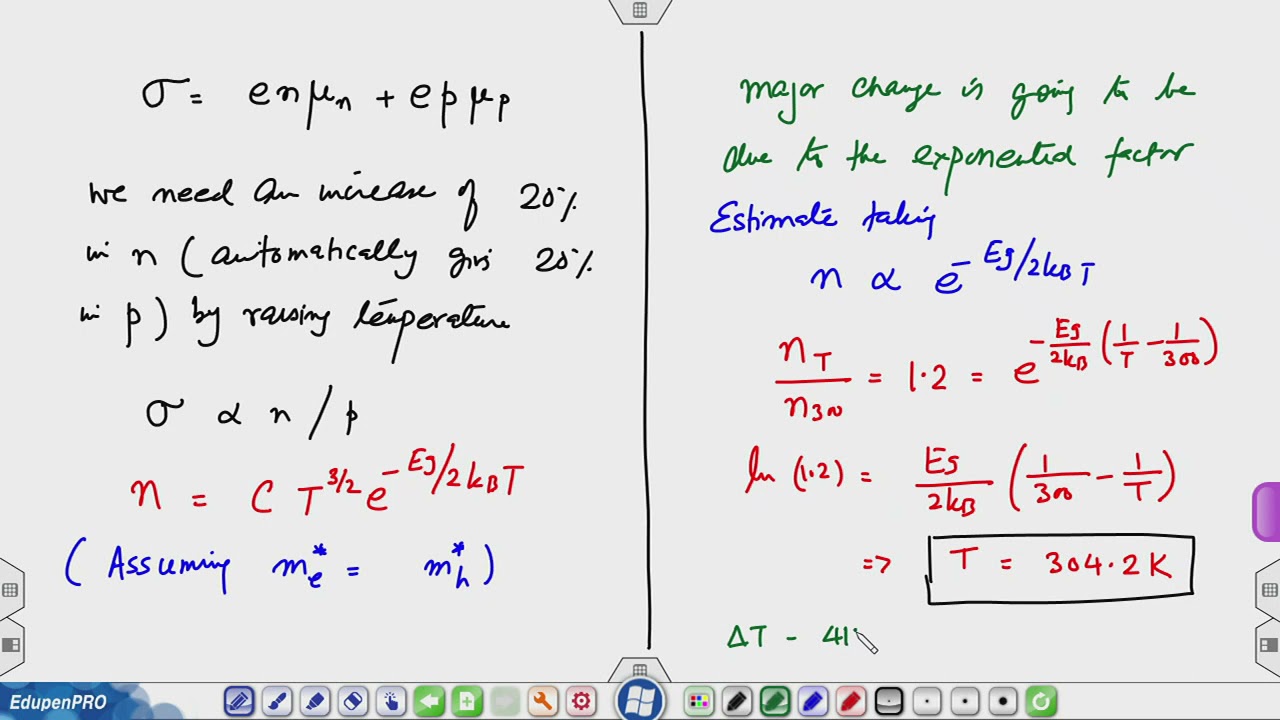 σ = enμₙ + epμₚ
we need an increase of 20%
in n (automatically gives 20%
in p) by raising temperature
σ ∝ n / p
n = C T^{3/2} e^{-Eg/2k_BT}
(Assuming m_e^* = m_h^*)
major change is going to be
due to the exponented factor
Estimate taking
n ∝ e^{-Eg/2k_BT}
n_T / n_{300} = 1.2 = e^{-\frac{Eg}{2k_B}(\frac{1}{T} - \frac{1}{300})}
ln (1.2) = \frac{Eg}{2k_B} (\frac{1}{300} - \frac{1}{T})
=> T = 304.2 K
ΔT - 41
EdupenPRO